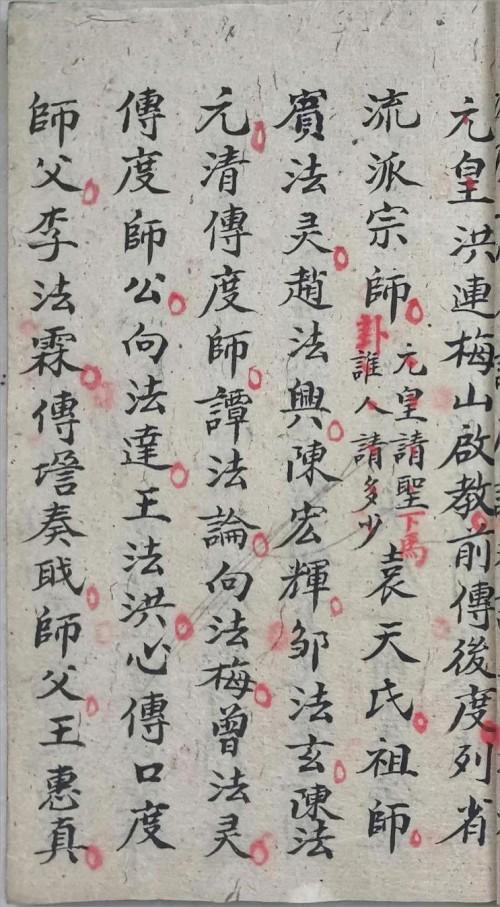 元皇洪連梅山啟教前傳後度列省
流派宗師元皇請聖下馬卦誰人請多少袁天氏祖師
賔法灵趙法興陳宏輝邹法玄陳法
元清傳度師譚法論向法梅曾法灵
傳度師公向法達王法洪心傳口度
師父李法霖傳度奏戝師父王惠真